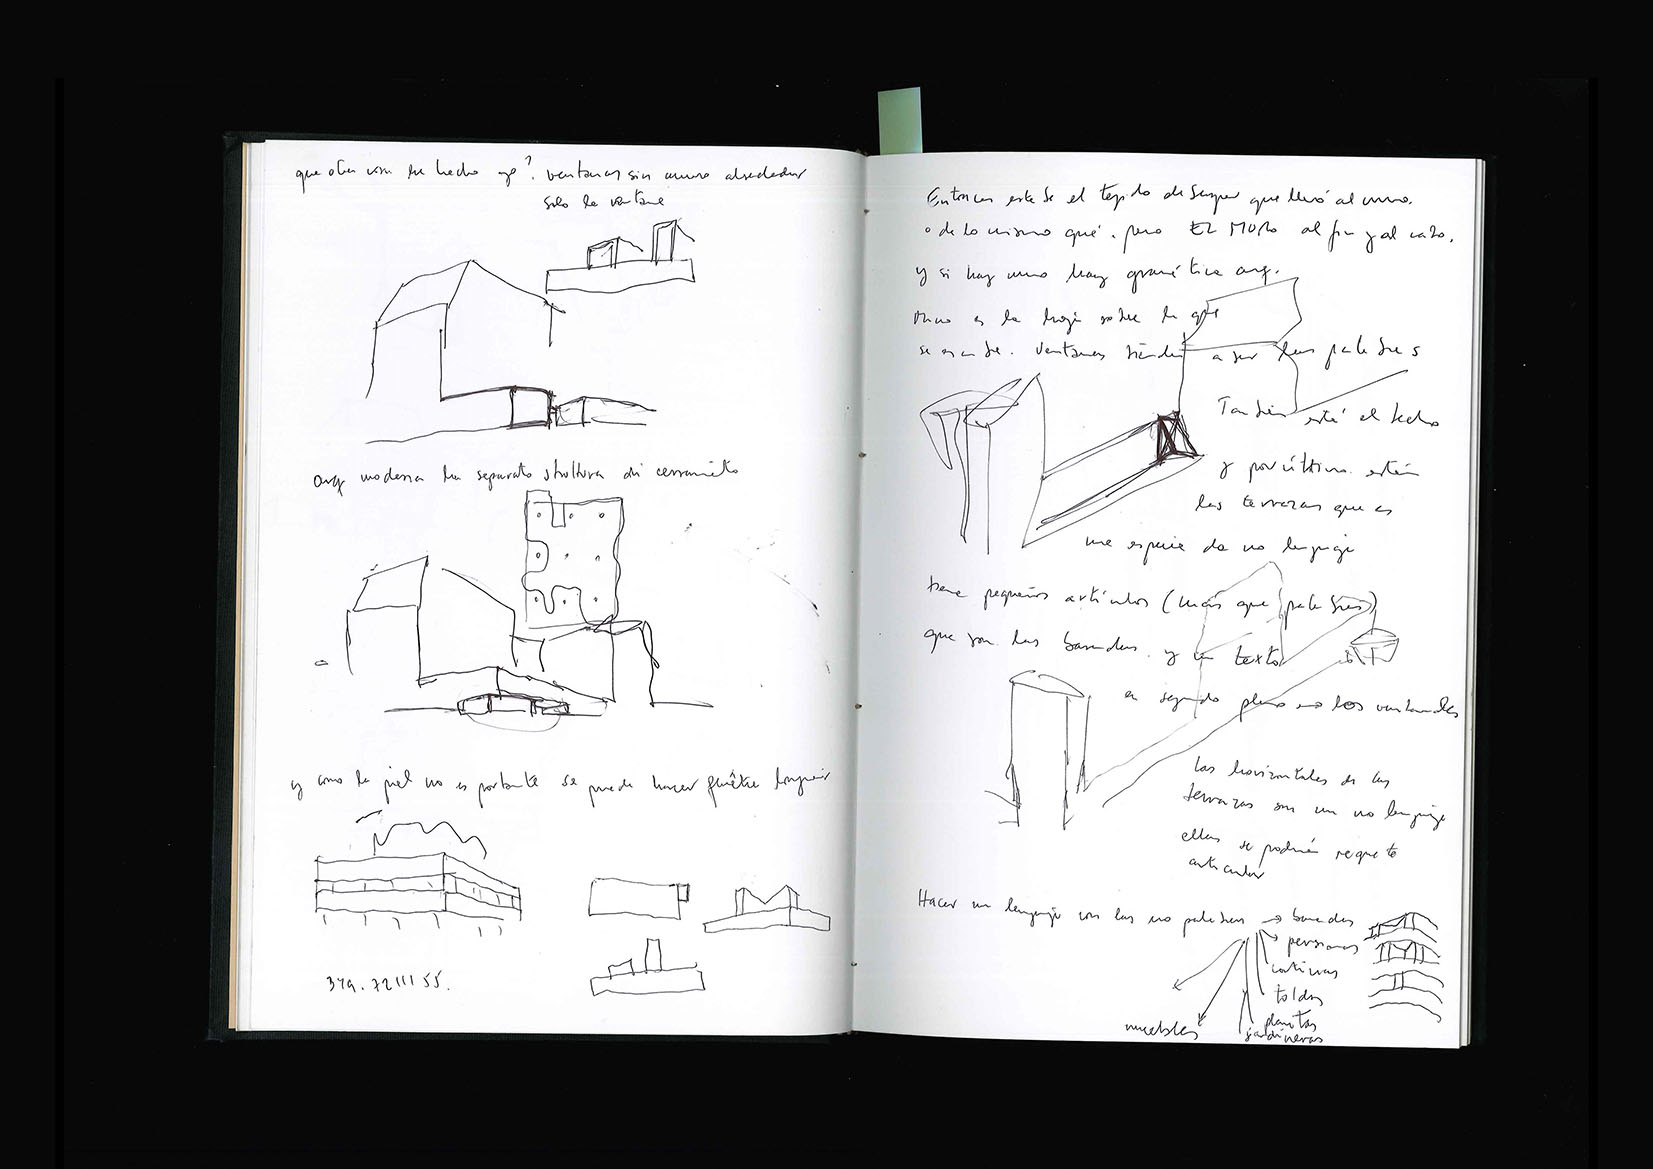 que otra cosa he hecho yo? ventanas sin muro alrededor
solo la ventana
arq moderna ha separato struttura di cerramiēto
y como la piel no es portante se puede hacer fenêtre longueur
379.7211155.
Entonces este es el tejido de Semper que llevó al muro.
o de lo mismo qué. pero EL MURO al fin y al cabo.
y si hay muro hay gramática arq.
Muro es la hoja sobre la que
se escribe. Ventanas tienden a ser las palabras
También está el techo
y por último están
las terrazas que es
una especie de no lenguaje
tiene pequeños artículos (más que palabras)
que son las barandas. y un texto
en segundo plano → los ventanales
Las horizontales de las
terrazas son un no lenguaje
ellas se podrían
articular
Hacer un lenguaje con las no palabras → barandas
persianas
cortinas
toldos
plantas
muebles
jardineras